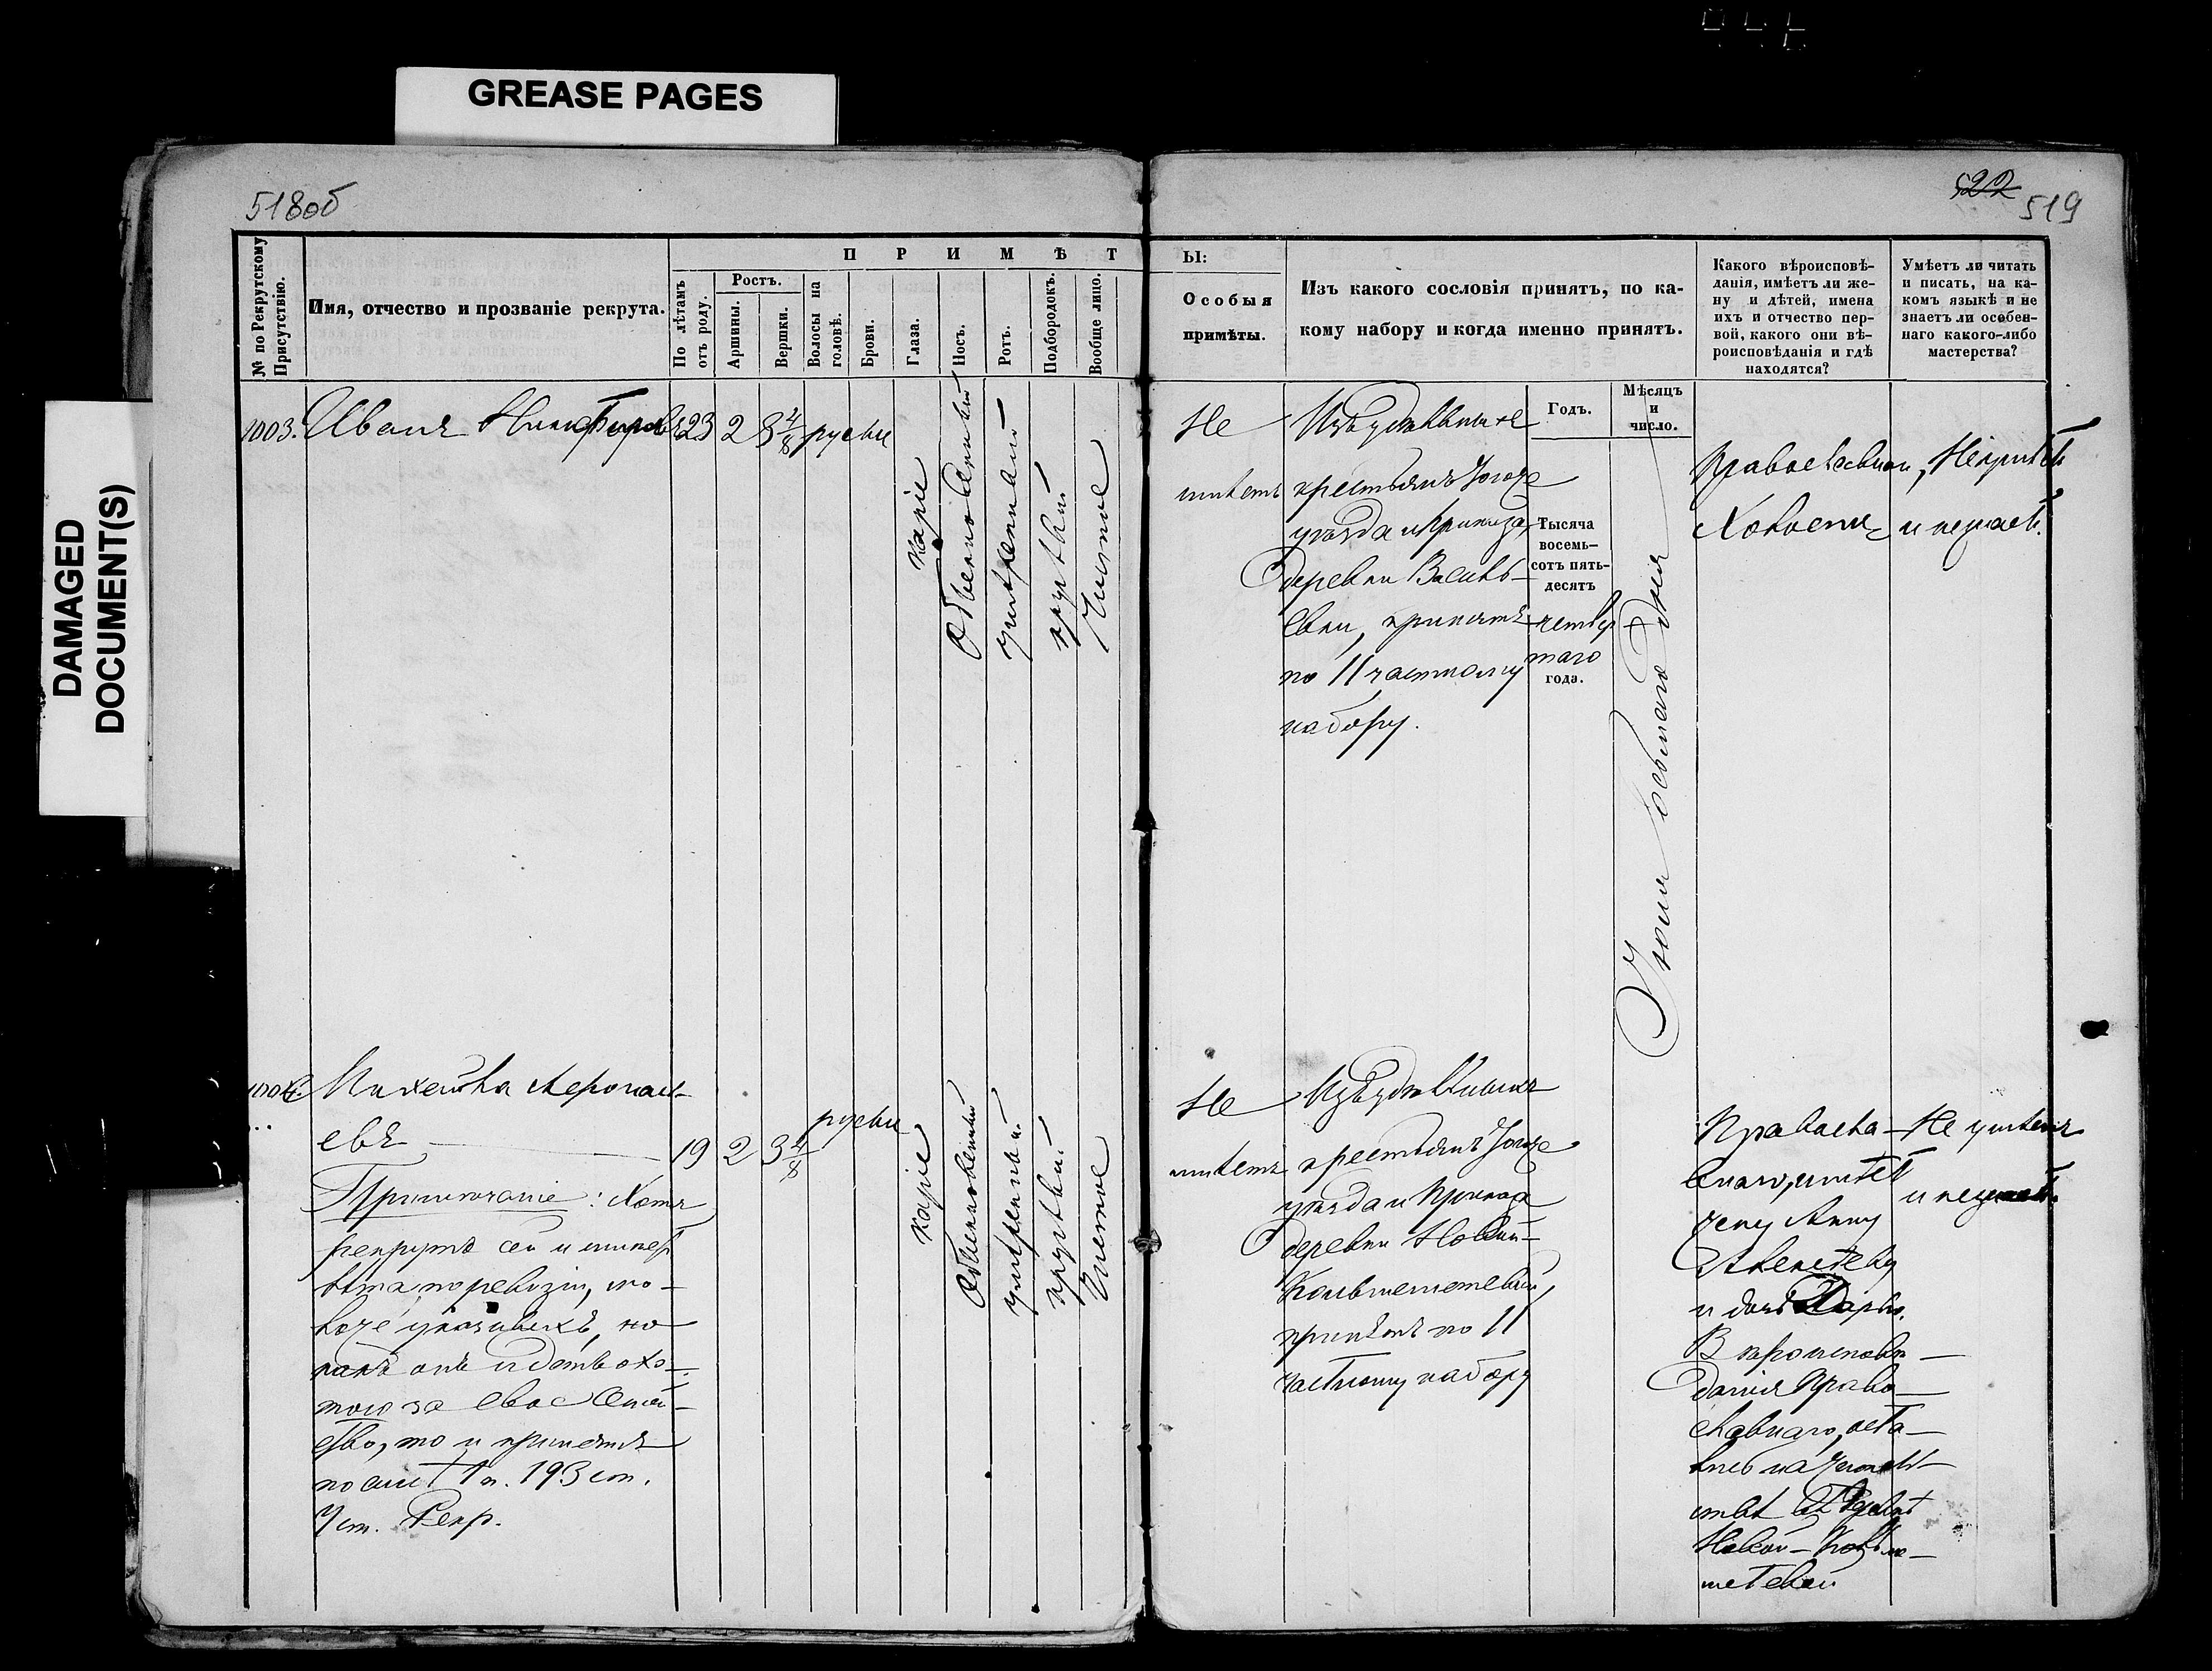 GREASE PAGES
DAMAGED
DOCUMENT(S)
518об
522
519
№ по Рекрутскому
Присутствію.
Имя, отчество и прозваніе рекрута.
П Р И М Ѣ Т
Ы:
По лѣтамъ
отъ роду.
Ростъ.
Аршины.
Вершки.
Волосы на
головѣ.
Брови.
Глаза.
Носъ.
Ротъ.
Подбородокъ.
Вообще лицо.
Особыя
примѣты.
Изъ какого сословія принятъ, по ка-
кому набору и когда именно принятъ.
Какого вѣроисповѣ-
данія, имѣетъ ли же-
ну и дѣтей, имена
ихъ и отчество пер-
вой, какого они вѣ-
роисповѣданія и гдѣ
находятся?
Умѣетъ ли читать
и писать, на ка-
комъ языкѣ и не
знаетъ ли особен-
наго какого-либо
мастерства?
Годъ.
Мѣсяцъ
и
число.
1003. Иванъ 23 2 3 4/8 русые
каріе
Обыкновенный
умѣренный
круглый
Чистое
Не
имѣетъ
Изъ удѣльныхъ
крестьянъ
уѣзда и приказа
деревни
принятъ
по 11 частному
набору.
Тысяча
восемь-
сотъ пять-
десять
четвер
таго
года.
Іюня осьмаго дня
Православнаго,
Холостъ
и незнаетъ.
1004.
евъ 19 2 3 4/8 русые
Примѣчаніе: Хотя
рекрутъ сей и имѣетъ
лѣта по ревизіи, мо-
ложе указныхъ, но
какъ онъ идетъ охо-
тою за свое семей-
ство, то и принятъ
по силѣ 1 п. 193 ст.
Уст. Рекр.
каріе
Обыкновенный
умѣренный
круглый
Чистое
Не
имѣетъ
Изъ удѣльныхъ
крестьянъ
уѣзда и приказа
деревни Новой-
принятъ по 11
частному набору
Правосла-
внаго, имѣетъ
жену Анну
и дочь Дарью.
Вѣроисповѣ-
данія Право-
славнаго, оста-
лись на
въ деревнѣ
Новой-
Не умѣетъ
и незнаетъ.